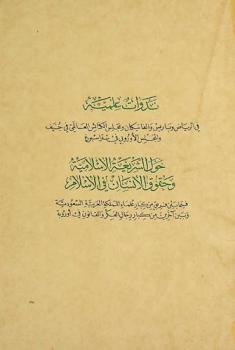 ندوات علمية
في الرياض وباريس والفاتيكان ومجلس الكنائس العالمي في جنيف
والمجلس الأوروبي في ستراسبورغ
حول الشريعة الإسلامية
وحقوق الإنسان في الإسلام
فيما بين فريق من كبار علماء المملكة العربية السعودية
وبين آخرين من كبار رجال الفكر والقانون في أوروبا